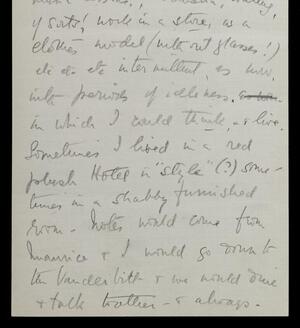 of sorts! work in a store, as a
clothes model (without glasses!)
etc etc etc intermittent, as now,
into periods of idleness,
in which I could think, & live.
Sometimes I lived in a red
plush Hotel in "style" (?) some-
times in a shabby furnished
room – Notes would come from
Maurice & I would go down to
the Vanderbilt & we would dine
& talk together – & always –